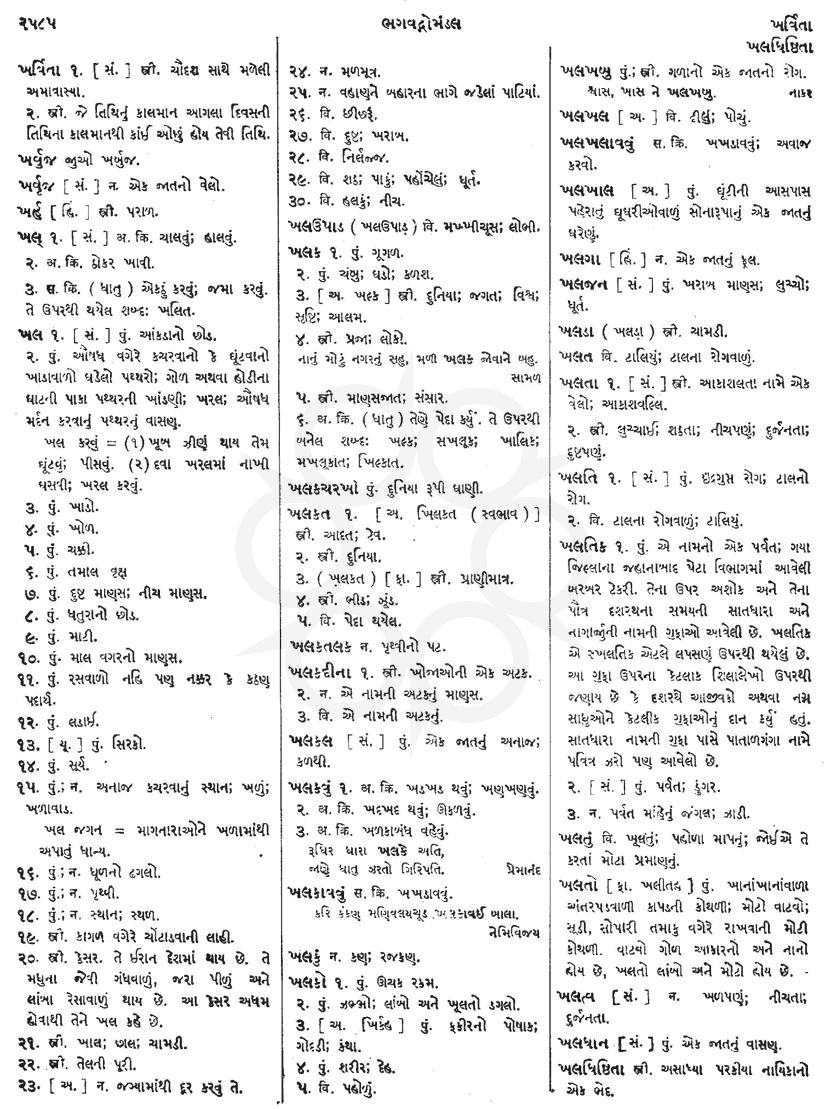 ૨૫૮૫
ભગવદ્ગોમંડલ
ખર્વિતા
ખલધિષ્ઠિતા
ખર્વિતા ૧. [ સં. ] સ્ત્રી. ચૌદશ સાથે મળેલી
અમાવાસ્યા.
૨. સ્ત્રી. જે તિથિનું કાલમાન આગલા દિવસની
તિથિના કાલમાનથી કાંઈ ઓછું હોય તેવી તિથિ.
ખર્વુજ જુઓ ખર્બુજ.
ખર્વૂજ [ સં. ] ન. એક જાતનો વેલો.
ખર્હ [ હિં. ] સ્ત્રી. પરાળ.
ખલ્ ૧. [ સં. ] અ. ક્રિ. ચાલવું; હાલવું.
૨. અ. ક્રિ. ઠોકર ખાવી.
૩. સ. ક્રિ. ( ધાતુ ) એકઠું કરવું; જમા કરવું.
તે ઉપરથી થયેલ શબ્દ: ખલિત.
ખલ ૧. [ સં. ] પું. આંકડાનો છોડ.
૨. પું. ઔષધ વગેરે કચરવાનો કે ઘૂંટવાનો
ખાડાવાળો ઘડેલો પથ્થરો; ગોળ અથવા હોડીના
ઘાટની પાકા પથ્થરની ખાંડણી; ખરલ; ઔષધ
મર્દન કરવાનું પથ્થરનું વાસણ.
ખલ કરવું = (૧) ખૂબ ઝીણું થાય તેમ
ઘૂંટવું; પીસવું. (૨) દવા ખરલમાં નાખી
ઘસવી; ખરલ કરવું.
૩. પું. ખાડો.
૪. પું. ખોળ.
૫. પું. ચક્કી.
૬. પું. તમાલ વૃક્ષ
૭. પું. દુષ્ટ માણસ; નીચ માણસ.
૮. પું. ધતુરાનો છોડ.
૯. પું. માટી.
૧૦. પું. માલ વગરનો માણસ.
૧૧. પું. રસવાળો નહિ પણ નક્કર કે કઠણ
પદાર્થ.
૧૨. પું. લડાઈ.
૧૩. [ યૂ. ] પું. સિરકો.
૧૪. પું. સૂર્ય.
૧૫. પું.; ન. અનાજ કચરવાનું સ્થાન; ખળું;
ખળાવાડ.
ખલ જગન = માગનારાઓને ખળામાંથી
અપાતું ધાન્ય.
૧૬. પું.; ન. ધૂળનો ઢગલો.
૧૭. પું.; ન. પૃથ્વી.
૧૮. પું.; ન. સ્થાન; સ્થળ.
૧૯. સ્ત્રી. કાગળ વગેરે ચોંટાડવાની લાહી.
૨૦. સ્ત્રી. કેસર. તે ઈરાન દેશમાં થાય છે. તે
મધુના જેવી ગંધવાળું, જરા પીળું અને
લાંબા રેસાવાળું થાય છે. આ કેસર અધમ
હોવાથી તેને ખલ કહે છે.
૨૧. સ્ત્રી. ખાલ; છાલ; ચામડી.
૨૨. સ્ત્રી. તેલની પૂરી.
૨૩. [ અ. ] ન. જગ્યામાંથી દૂર કરવું તે.
૨૪. ન. મળમૂત્ર.
૨૫. ન. વહાણુને બહારના ભાગે જડેલાં પાટિયાં.
૨૬. વિ. છીછરૂં.
૨૭. વિ. દુષ્ટ; ખરાબ.
૨૮. વિ. નિર્લજ્જ.
૨૯. વિ. શઠ; પાકું; પહોંચેલું; ધૂર્ત.
૩૦. વિ. હલકું; નીચ.
ખલઉપાડ ( ખલઉપાડ઼ ) વિ. મખ્ખીચૂસ; લોભી.
ખલક ૧. પું. ગૂગળ.
૨. પું. ચંબુ; ઘડો; કળશ.
૩. [ અ. ખલ્ક ] સ્ત્રી. દુનિયા; જગત; વિશ્વ;
સૃષ્ટિ; આલમ.
૪. સ્ત્રી. પ્રજા; લોકો.
નાનું મોટું નગરનું સહુ, મળી ખલક જોવાને બહુ.
સામળ
૫. સ્ત્રી. માણસજાત; સંસાર.
૬. અ. ક્રિ. ( ધાતુ ) તેણે પેદા કર્યું. તે ઉપરથી
બનેલ શબ્દ: ખલ્ક; સખલૂક; ખાલિક;
મખલૂકાત; ખિલ્કાત.
ખલકચરખો પું. દુનિયા રૂપી ઘાણી.
ખલકત ૧. [ અ. ખિલકત ( સ્વભાવ ) ]
સ્ત્રી. આદત; ટેવ.
૨. સ્ત્રી. દુનિયા.
૩. ( ખ઼લકત ) [ ફા. ] સ્ત્રી. પ્રાણીમાત્ર.
૪. સ્ત્રી. ભીડ; ઝૂંડ.
૫. વિ. પેદા થયેલ.
ખલકતલક ન. પૃથ્વીનો પટ.
ખલકદીના ૧. સ્ત્રી. ખોજાઓની એક અટક.
૨. ન. એ નામની અટકનું માણસ.
૩. વિ. એ નામની અટકનું.
ખલકલ [ સં. ] પું. એક જાતનું અનાજ;
કળથી.
ખલકવું ૧. અ. ક્રિ. ખડખડ થવું; ખણખણવું.
૨. અ. ક્રિ. ખદખદ થવું; ઊકળવું.
૩. અ. ક્રિ. ખળકાબંધ વહેવું.
રૂધિર ધારા ખલકે અતિ,
જાણે ધાતુ ઝરતો ગિરિપતિ. પ્રેમાનંદ
ખલકાવવું સ. ક્રિ. ખખડાવવું.
કરિ કંકણ મણિવલયચૂડ ખલકાવઈ બાલા.
નેમિવિજય
ખલકું ન. કણ; રજકણ.
ખલકો ૧. પું. ઊચક રકમ.
૨. પું. ઝભ્ભો; લાંબો અને ખૂલતો ડગલો.
૩. [ અ. ખિર્કહ ] પું. ફકીરનો પોષાક;
ગોદડી; કંથા.
૪. પું. શરીર; દેહ.
૫. વિ. પહોળું.
ખલખબુ પું.; સ્ત્રી. ગળાનો એક જાતનો રોગ.
શ્વાસ, ખાસ ને ખલખબુ. નાકર
ખલખલ [ અ. ] વિ. ઢીલું; પોચું.
ખલખલાવવું સ. ક્રિ. ખખડાવવું; અવાજ
કરવો.
ખલખાલ [ અ. ] પું. ઘૂંટીની આસપાસ
પહેરાતું ઘૂઘરીઓવાળું સોનારૂપાનું એક જાતનું
ઘરેણું.
ખલગા [ હિં. ] ન. એક જાતનું ફૂલ.
ખલજન [ સં. ] પું. ખરાબ માણસ; લુચ્ચો;
ધૂર્ત.
ખલડા ( ખલડ઼ા ) સ્ત્રી. ચામડી.
ખલત વિ. ટાલિયું; ટાલના રોગવાળું.
ખલતા ૧. [ સં. ] સ્ત્રી. આકાશલતા નામે એક
વેલો; આકાશવલ્લિ.
૨. સ્ત્રી. લુચ્ચાઈ; શઠતા; નીચપણું; દુર્જનતા;
દુષ્ટપણું.
ખલતિ ૧. [ સં. ] પું. ઇંદ્રગુપ્ત રોગ; ટાલનો
રોગ.
૨. વિ. ટાલના રોગવાળું; ટાલિયું.
ખલતિક ૧. પું. એ નામનો એક પર્વત; ગયા
જિલ્લાના જહાનાબાદ પેટા વિભાગમાં આવેલી
બરબર ટેકરી. તેના ઉપર અશોક અને તેના
પૌત્ર દશરથના સમયની સાતધારા અને
નાગાર્જુની નામની ગુફાઓ આવેલી છે. ખલતિક
એ સ્ખલતિક એટલે લપસણું ઉપરથી થયેલું છે.
આ ગુફા ઉપરના કેટલાક શિલાલેખો ઉપરથી
જણાય છે કે દશરથે આજીવકો અથવા નગ્ન
સાધુઓને કેટલીક ગુફાઓનું દાન કર્યું હતું.
સાતધારા નામની ગુફા પાસે પાતાળગંગા નામે
પવિત્ર ઝરો પણ આવેલો છે.
૨. [ સં. ] પું. પર્વત; ડુંગર.
૩. ન. પર્વત માંહેનું જંગલ; ઝાડી.
ખલતું વિ. ખૂલતું; પહોળા માપનું; જોઈએ તે
કરતાં મોટા પ્રમાણનું.
ખલતો [ ફા. ખલીતહ ] પું. ખાનાંખાનાંવાળા
અંતરપડવાળી કાપડની કોથળી; મોટો વાટવો;
સૂડી, સોપારી તમાકુ વગેરે રાખવાની મોટી
કોથળી. વાટવો ગોળ આકારનો અને નાનો
હોય છે, ખલતો લાંબો અને મોટો હોય છે.
ખલત્વ [ સં. ] ન. ખળપણું; નીચતા;
દુર્જનતા.
ખલધાન [ સં. ] પું. એક જાતનું વાસણ.
ખલધિષ્ઠિતા સ્ત્રી. અસાધ્યા પરકીયા નાયિકાનો
એક ભેદ.